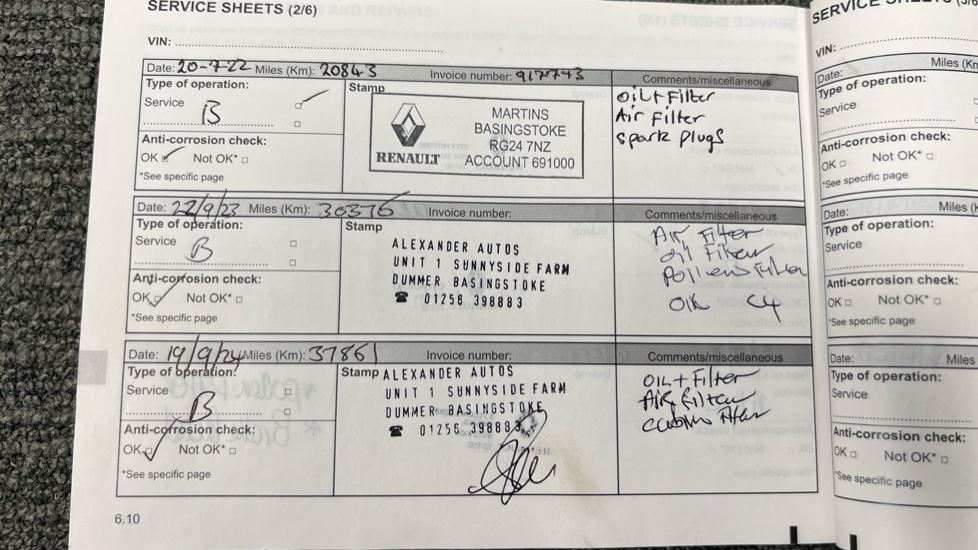 SERVICE SHEETS (2/6)
VIN:
Date: 20-7-22 Miles (Km): 20843 Invoice number: 917743 Comments/miscellaneous
Type of operation:
Service B
Anti-corrosion check:
OK Not OK*
*See specific page
Stamp
RENAULT
MARTINS
BASINGSTOKE
RG24 7NZ
ACCOUNT 691000
Oil + Filter
Air Filter
Spark plugs
Date: 22/9/23 Miles (Km): 30376 Invoice number: Comments/miscellaneous
Type of operation:
Service B
Anti-corrosion check:
OK Not OK*
*See specific page
Stamp
ALEXANDER AUTOS
UNIT 1 SUNNYSIDE FARM
DUMMER BASINGSTOKE
☎ 01256 398883
Air Filter
Oil Filter
Pollen Filter
Date: 19/9/24 Miles (Km): 37861 Invoice number: Comments/miscellaneous
Type of operation:
Service B
Anti-corrosion check:
OK Not OK*
*See specific page
Stamp
ALEXANDER AUTOS
UNIT 1 SUNNYSIDE FARM
DUMMER BASINGSTOKE
☎ 01256 398883
Oil + Filter
Air Filter
Cabin Filter
6.10
SERVICE SHEETS (3/6)
VIN:
Date: Miles (Km
Type of operation:
Service
Anti-corrosion check:
OK Not OK*
*See specific page
Date: Miles (K
Type of operation:
Service
Anti-corrosion check:
OK Not OK*
*See specific page
Date: Miles
Type of operation:
Service
Anti-corrosion check:
OK Not OK*
*See specific page